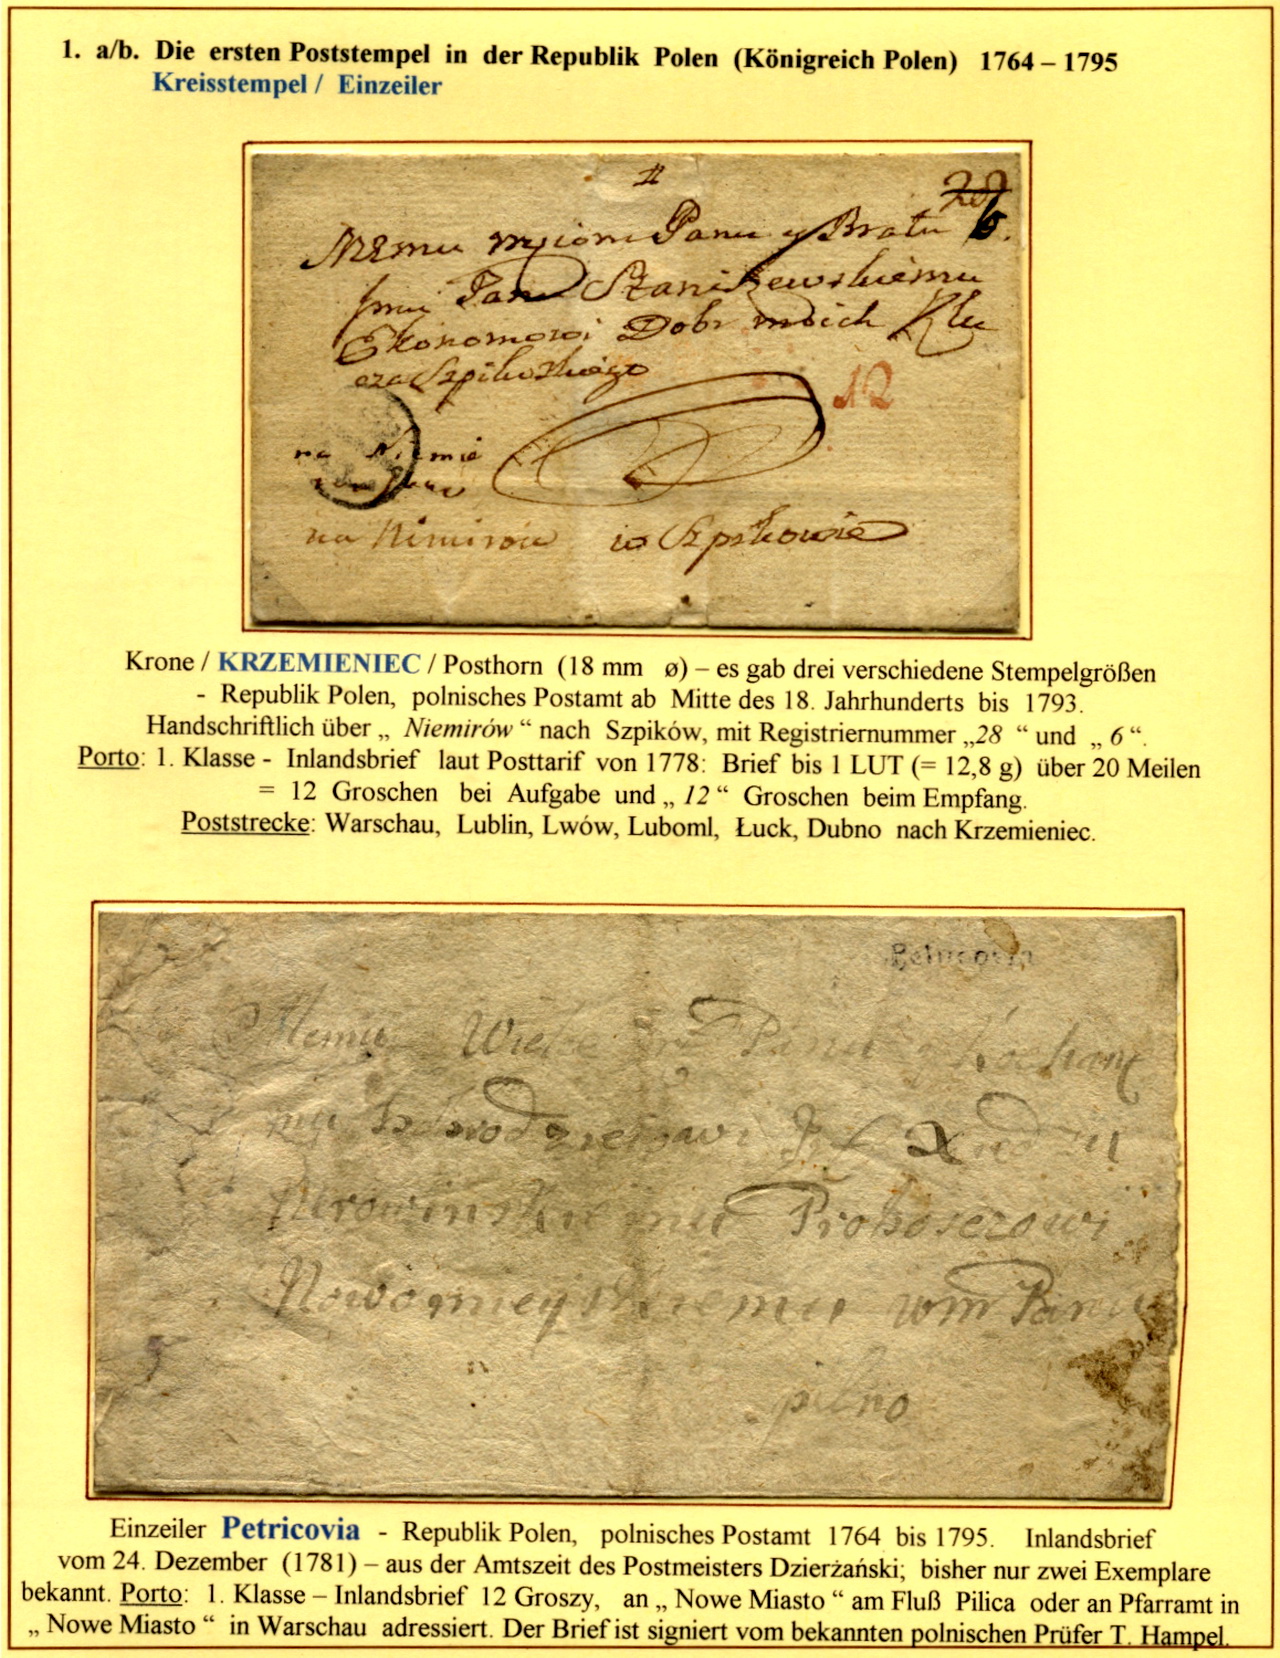 1. a/b. Die ersten Poststempel in der Republik Polen (Königreich Polen) 1764 – 1795
Kreisstempel / Einzeiler
28
Panu y Bratu 6.
Pan Staniszewskiemu
Ekonomowi Dobr moich Klu
cza Szpikowskiego
12
na Niemi
na Nimirow w Szpikowie
Krone / KRZEMIENIEC / Posthorn (18 mm ø) – es gab drei verschiedene Stempelgrößen
- Republik Polen, polnisches Postamt ab Mitte des 18. Jahrhunderts bis 1793.
Handschriftlich über „ Niemirów “ nach Szpików, mit Registriernummer „28 “ und „ 6 “.
Porto: 1. Klasse - Inlandsbrief laut Posttarif von 1778: Brief bis 1 LUT (= 12,8 g) über 20 Meilen
= 12 Groschen bei Aufgabe und „ 12 “ Groschen beim Empfang.
Poststrecke: Warschau, Lublin, Lwów, Luboml, Łuck, Dubno nach Krzemieniec.
Petricovia
Memu Wielce Panu y Kochane
mu Dobrodzieiowi Xiędzu
Proboszczowi
Nowomieyskiemu wm Panu
pilno
Einzeiler Petricovia - Republik Polen, polnisches Postamt 1764 bis 1795. Inlandsbrief
vom 24. Dezember (1781) – aus der Amtszeit des Postmeisters Dzierżański; bisher nur zwei Exemplare
bekannt. Porto: 1. Klasse – Inlandsbrief 12 Groszy, an „ Nowe Miasto “ am Fluß Pilica oder an Pfarramt in
„ Nowe Miasto “ in Warschau adressiert. Der Brief ist signiert vom bekannten polnischen Prüfer T. Hampel.